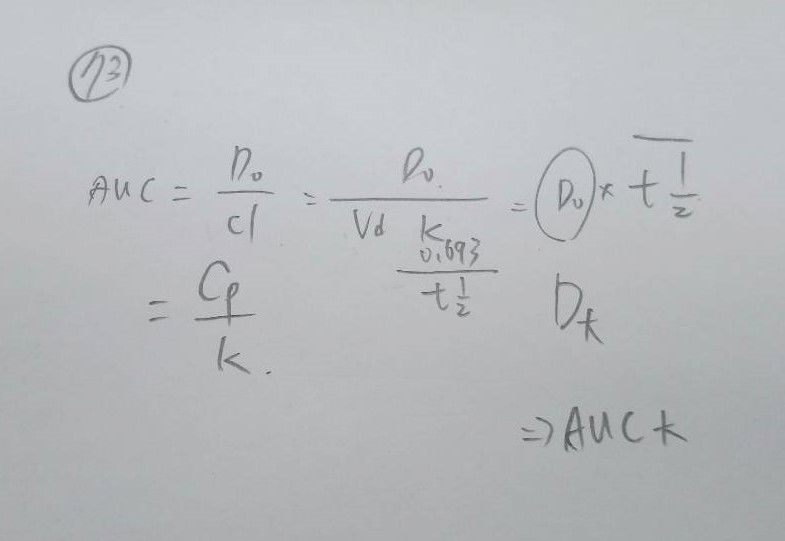 73
AUC = D₀/cl = D₀/Vd k = D₀ * t 1/2
0.693/t 1/2
= Cp/k.
D大
⇒ AUC大